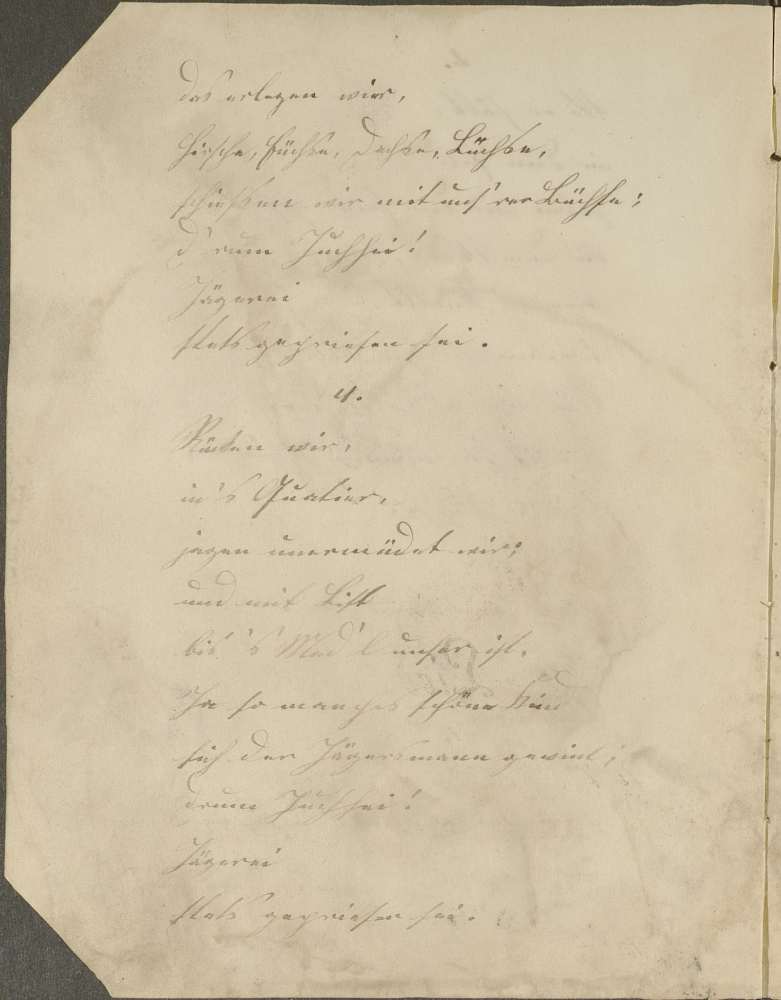 das erlegen wir,
Hirsche, Füchse, Dachse, Lüchse,
schießen wir mit uns'rer Büchse;
d'rum Juchhei!
Jägerei
stets gepriesen sei.
4.
Rücken wir,
in's Quatier,
jagen unermüdet wir;
und mit List
bis 's Mad'l unser ist.
Ja so manches schöne Kind
sich der Jägersmann gewint;
drum Juchhei!
Jägerei
stets gepriesen sei.